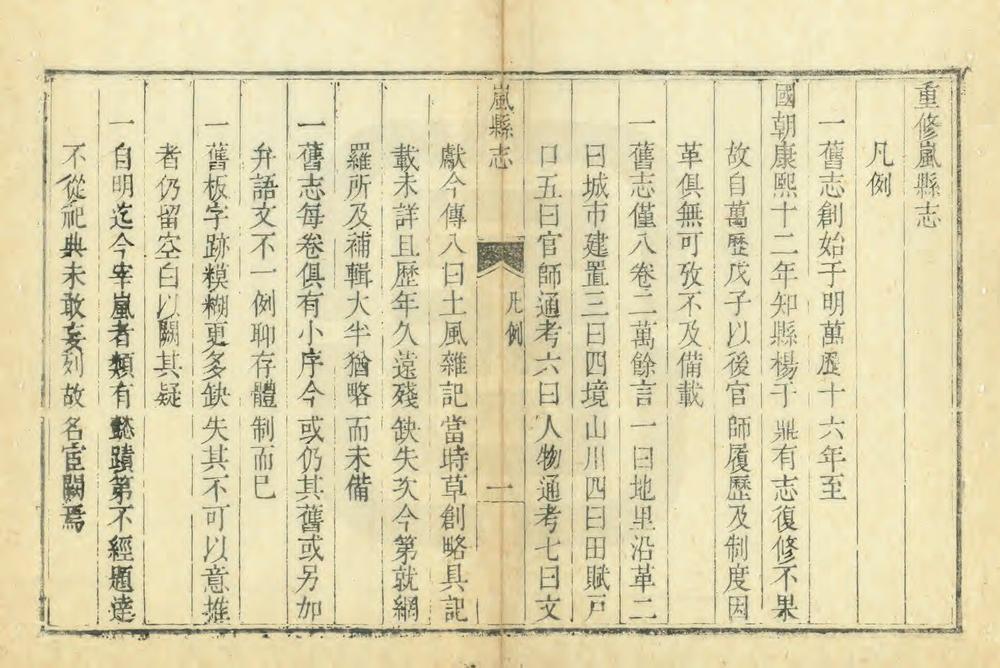 重修嵐縣志
凡例
一舊志創始于明萬歷十六年至
國朝康熙十二年知縣楊于鼎有志復修不果
故自萬歷戊子以後官師履歷及制度因
革俱無可攷不及備載
一舊志僅八卷二萬餘言一曰地里沿革二
曰城市建置三曰四境山川四曰田賦戸
口五曰官師通考六曰人物通考七曰文
嵐縣志
凡例
一
獻今傳八曰土風雜記當時草創略具記
載未詳且歷年久遠殘缺失次今第就網
羅所及補輯大半猶略而未備
一舊志每卷俱有小序今或仍其舊或另加
弁語文不一例聊存體制而已
一舊板字跡糢糊更多缺失其不可以意推
者仍留空白以闕其疑
一自明迄今宰嵐者類有懿蹟第不經題達
不從祀典未敢妄列故名宦闕焉